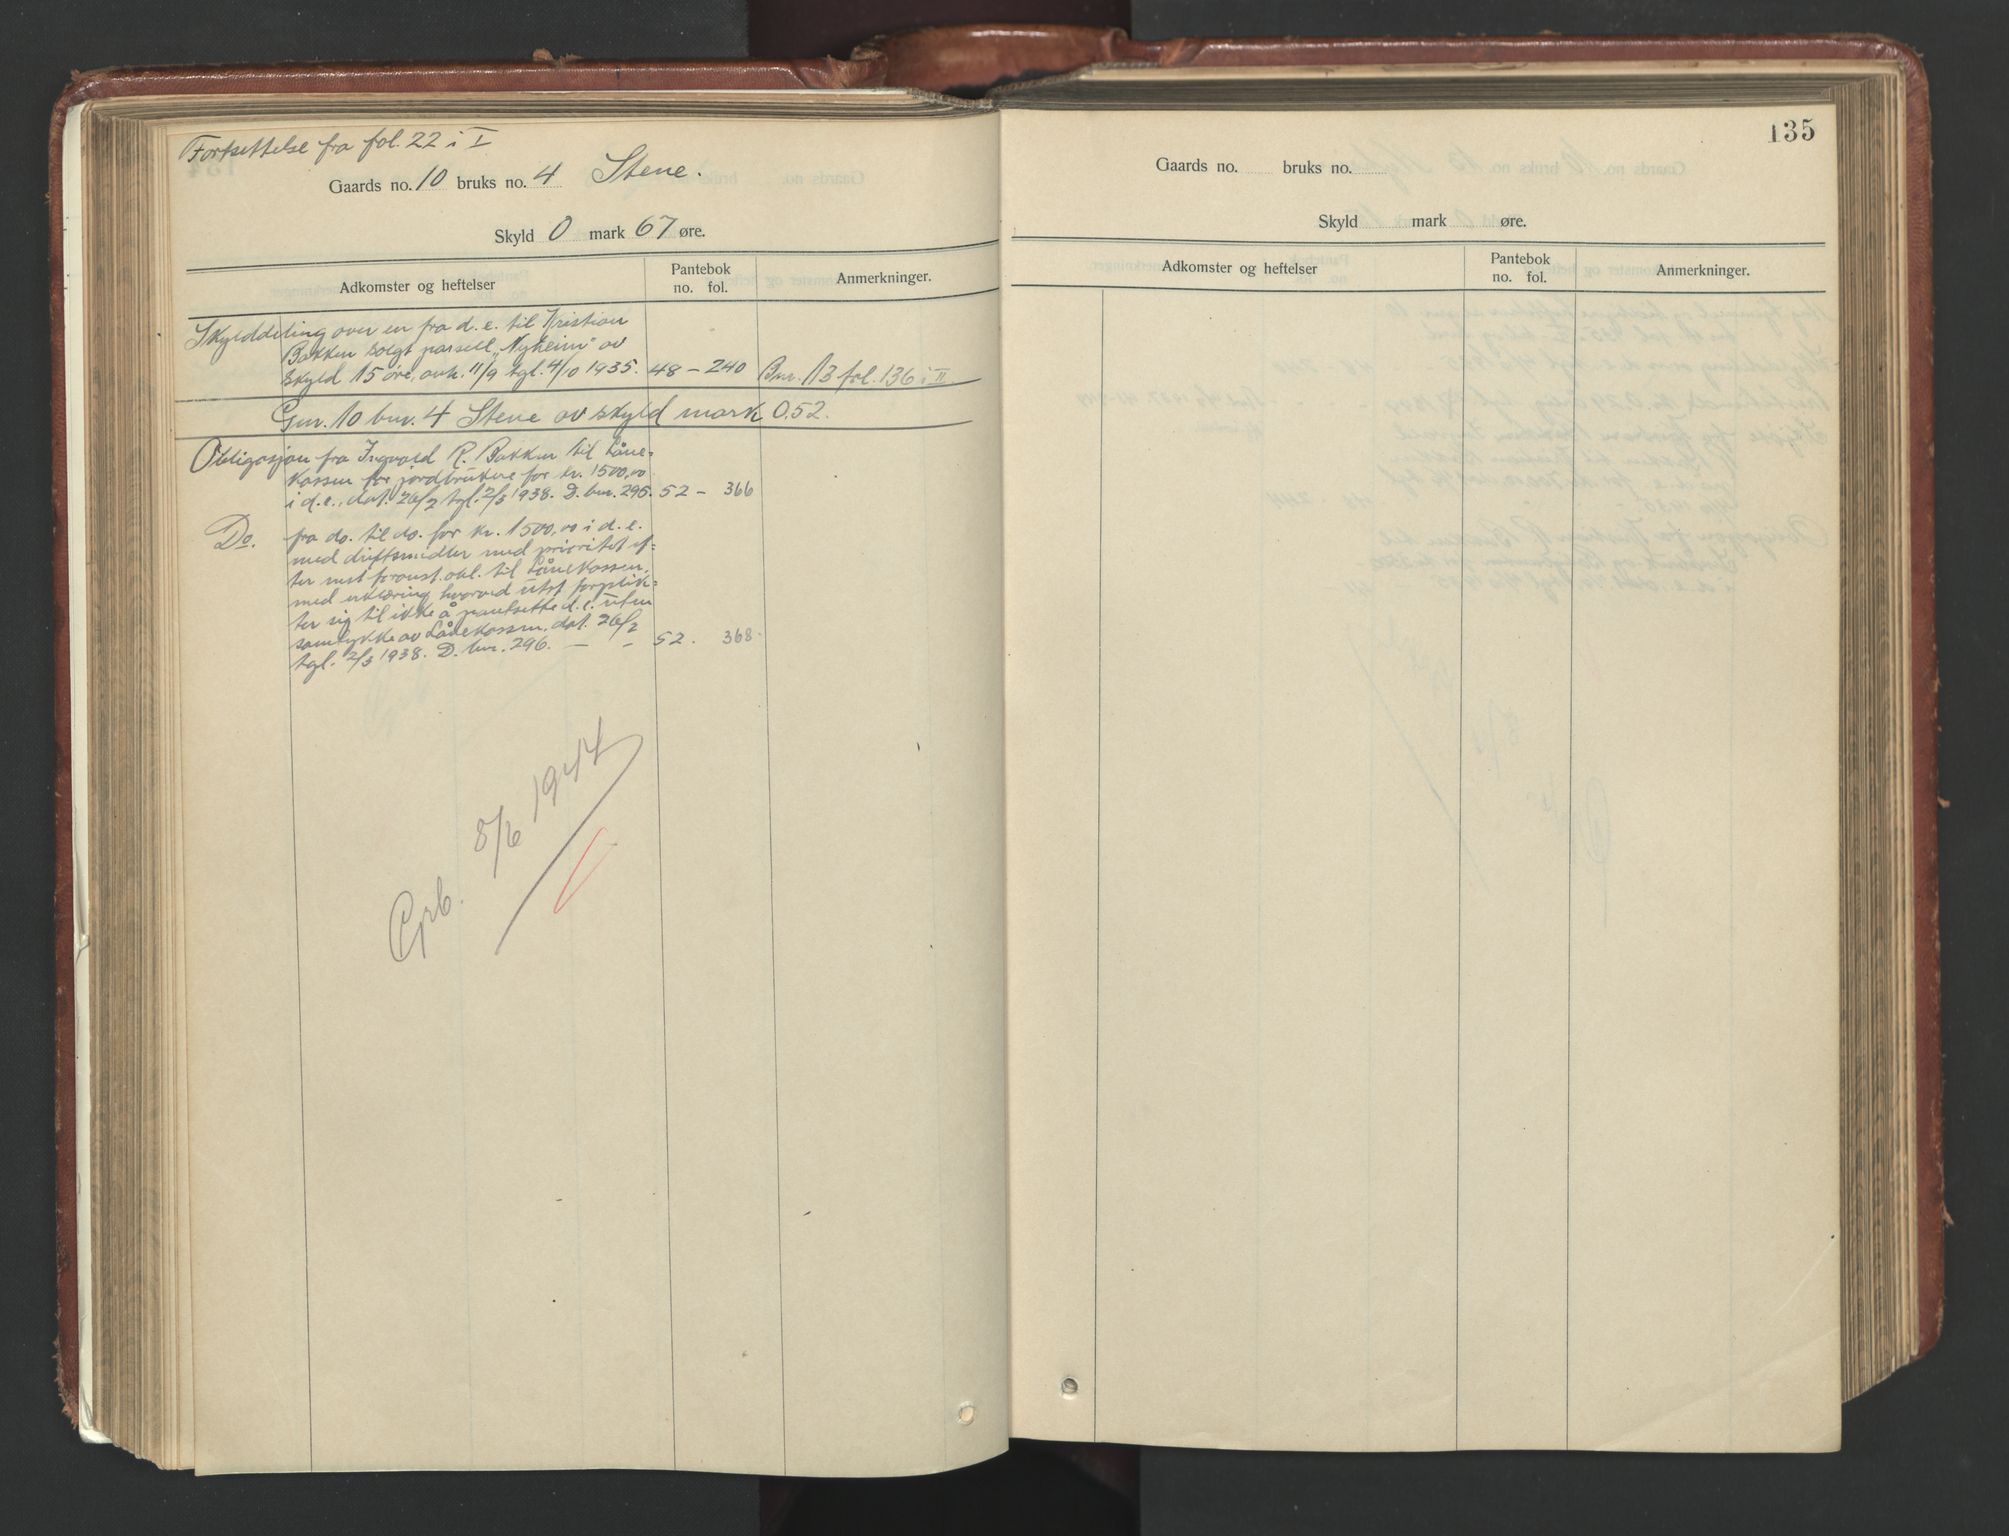 Fortsettelse fra fol. 22 i I
Gaards no. 10 bruks no. 4 Stene.
Skyld 0 mark 67 øre.
Adkomster og heftelser
Pantebok
no. fol.
Anmerkninger.
Skylddeling over en fra d. e. til Kristian
Bakken solgt parsell „Nyheim" av
skyld 15 øre, avh. 11/9 tgl. 4/10 1935. 48 – 240 Bnr. 13 fol. 136 i II
Gnr. 10 bnr. 4 Stene av skyld mark 0.52.
Obligasjon fra Ingvald R. Bakken til Låne-
kassen for jordbrukere for kr. 1500,00
i d. e., dat. 26/2 tgl. 2/3 1938. D. bnr. 295. 52 – 366
Do. fra do. til do. for kr. 1500,00 i d. e.
med driftsmidler med prioritet ef=
ter nest foranst. obl. til Lånekassen,
med erklæring hvorved utst. forplik=
ter sig til ikke å pantsette d. e. uten
samtykke av Lånekassen, dat. 26/2
tgl. 2/3 1938. D. bnr. 296. — – 52. 368.
8/6 1944
135
Gaards no. bruks no.
Skyld mark øre.
Adkomster og heftelser
Pantebok
no. fol.
Anmerkninger.